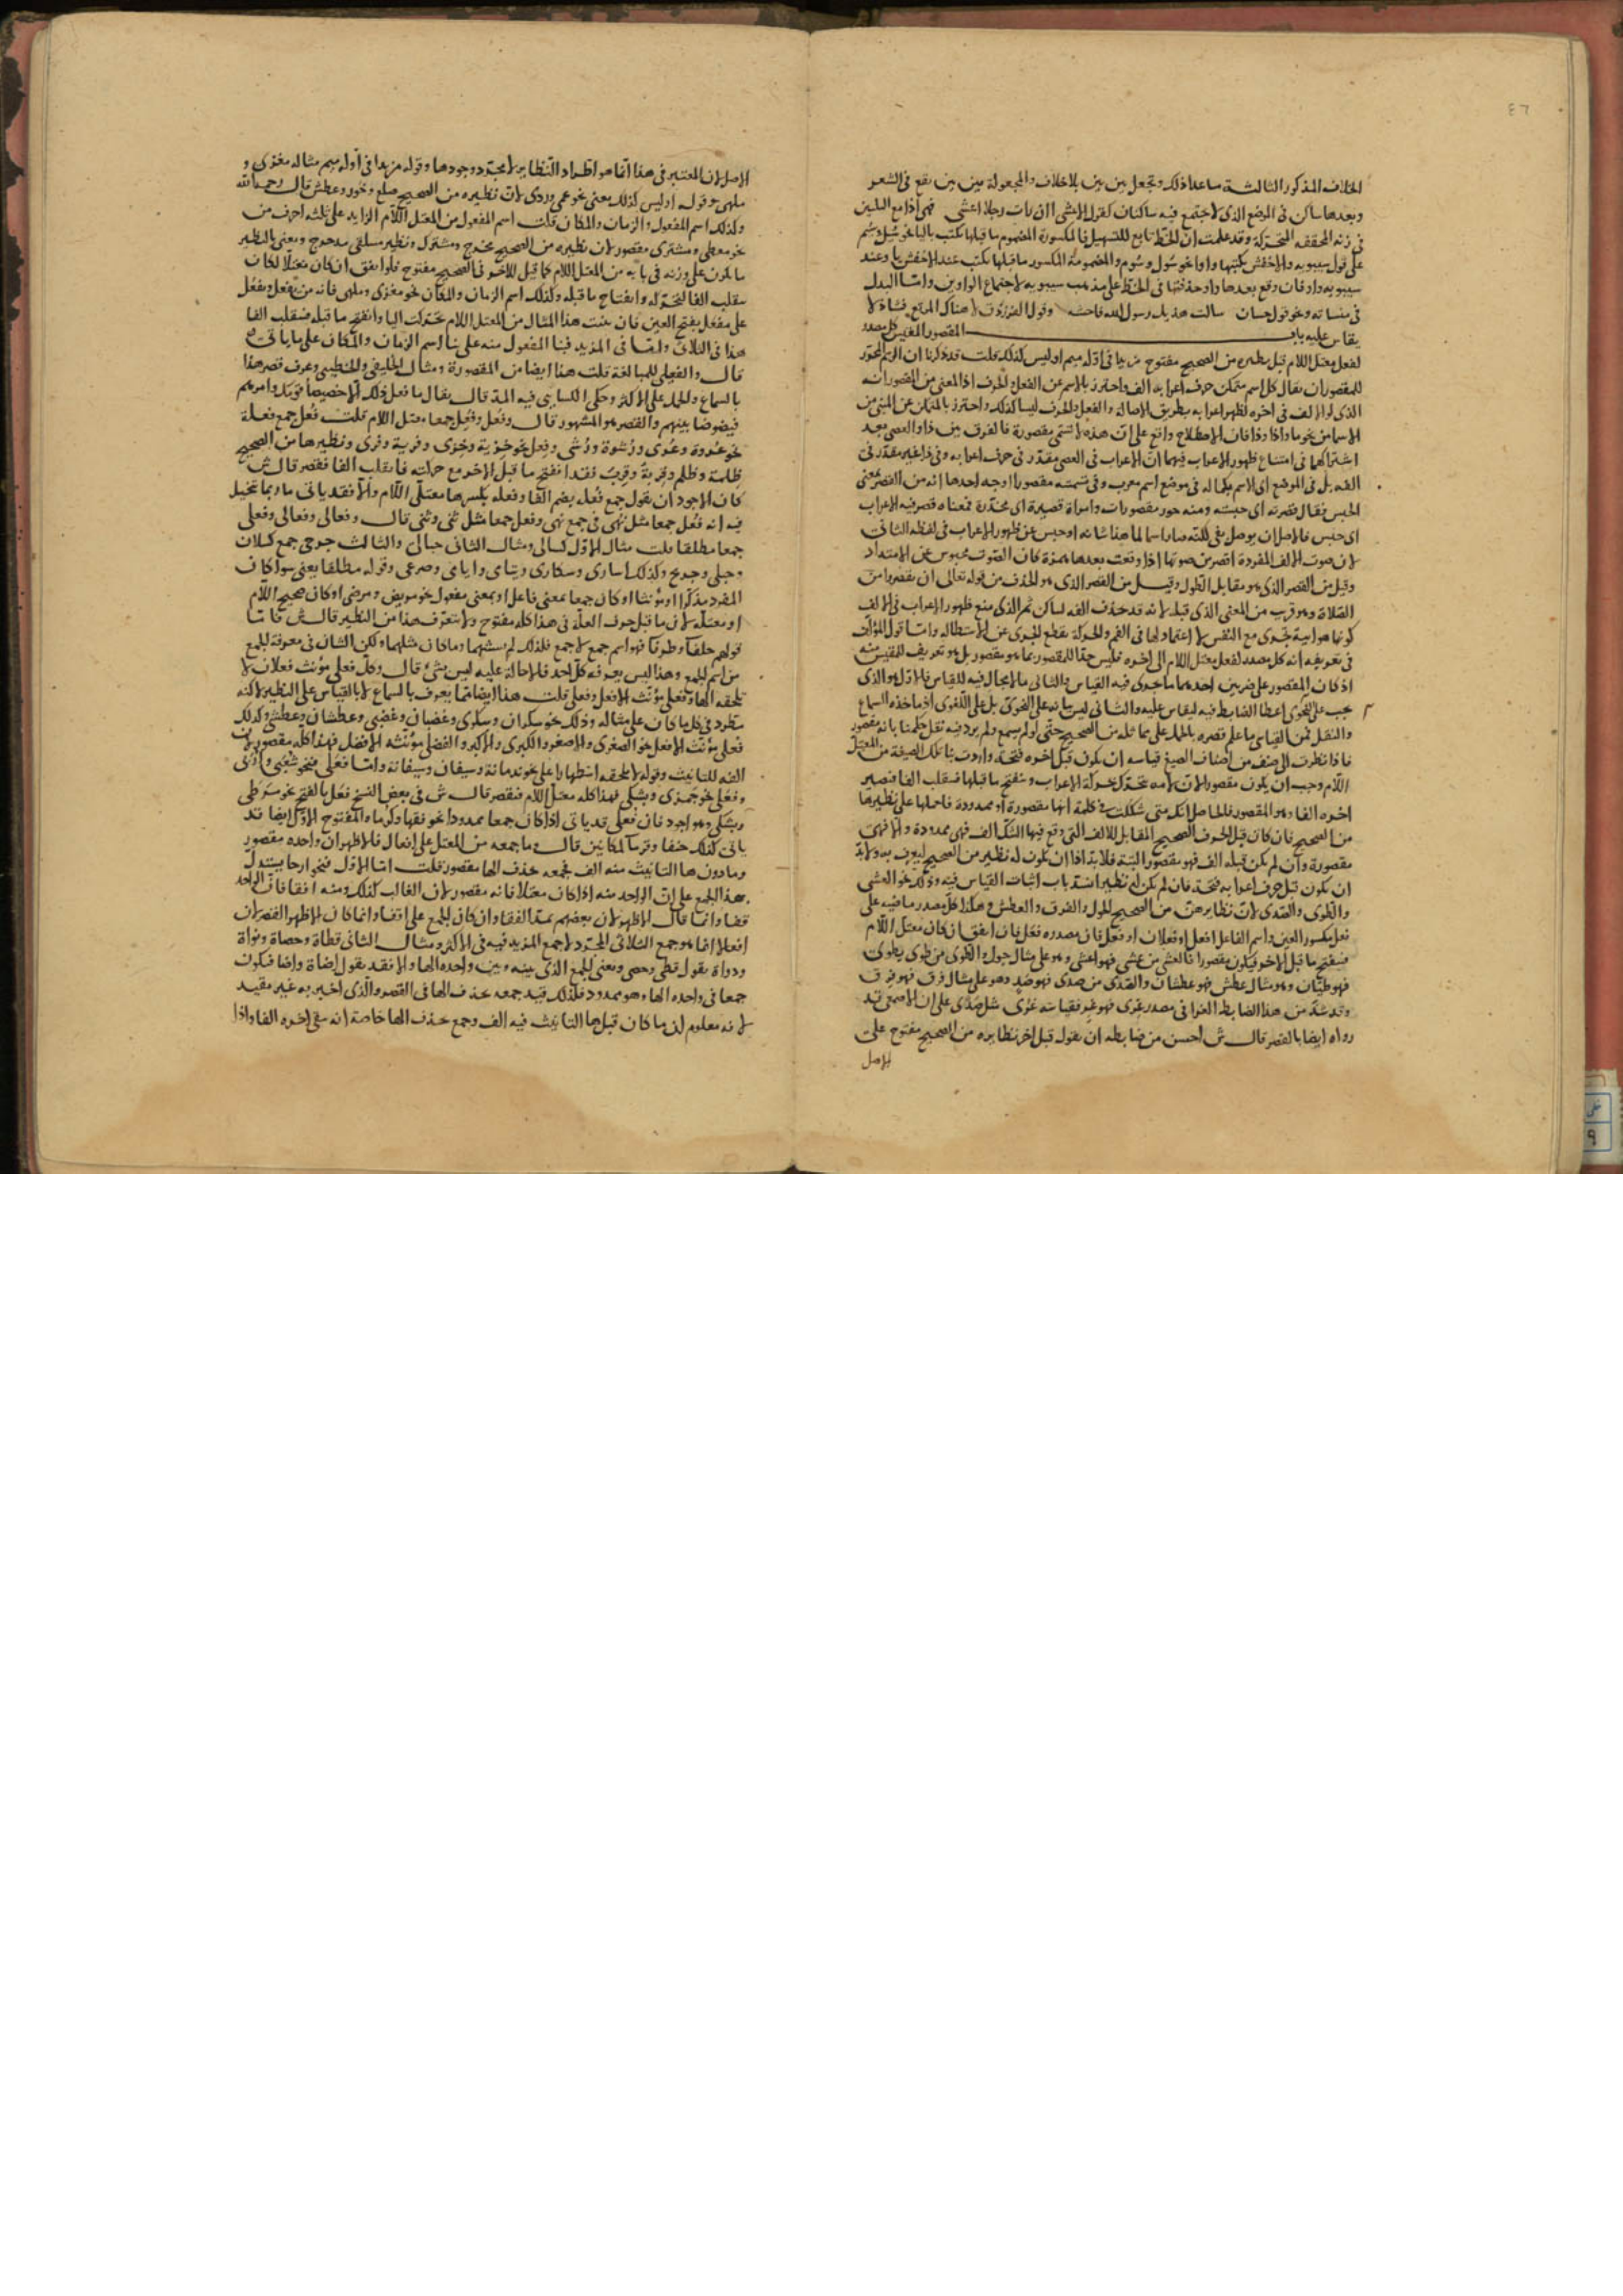 ٤٦
الخلاف المذكور الثالثة ما عدا ذلك وتجعل بين بين بلا خلاف والمجعولة بين بين تقع في الشعر
وبعدها ساكن في الموضع الذي لا يجتمع فيه ساكنان كقول الاعشى اان رات رجلا اعشى فهي اذا مع التليين
في زنة المحققة المتحركة وقد علمت ان الخط تابع للتسهيل فالمكسورة المضموم ما قبلها تكتب بالياء نحو سئل وسئم
على قول سيبويه والاخفش يكتبها واوا نحو سول وسوم والمضمومة المكسور ما قبلها تكتب عند الاخفش يا وعند
سيبويه واو فان وقع بعدها واو حذفتها في الخط على مذهب سيبويه لاجتماع الواوين واما البدل
في منساته ونحو قول حسان سالت هذيل رسول الله فاحشة وقول الفرزدق لا هناك المرتع فشاذ لا
يقاس عليه باب المقصور المقيس كل مصدر
لفعل معتل اللام قبل نظيره من الصحيح مفتوح مزيدا في اوله ميم او ليس كذلك قلت قد ذكرنا ان الرسم المحرر
للمقصور ان يقال كل اسم متمكن حرف اعرابه الف واحترز بالاسم عن الفعل والحرف اذ المعني من المقصور انه
الذي لولا الف في اخره لظهر اعرابه بطريق الاصالة والفعل والحرف ليسا كذلك واحترز بالمتمكن عن المبني من
الاسما من نحو ما واذا وذا فان الاصطلاح واقع على ان هذه لا تسمى مقصورة فالفرق بين ذا والعصى بعد
اشتراكهما في امتناع ظهور الاعراب فيهما ان الاعراب في العصى مقدر في حرف اعرابه وفي ذا غير مقدر في
الفه بل في الموضع اي الاسم بكماله في موضع اسم معرب وفي تسميته مقصورا اوجه احدها انه من القصر بمعنى
الحبس يقال قصرته اي حبسته ومنه حور مقصورات وامراة قصيرة اي مخدرة فمعناه قصر فيه الاعراب
اي حبس
لان صوت الالف المفردة اقصر من صوتها اذا وقعت بعدها همزة كان الصوت محبوس عن الامتداد
وقيل من القصر الذي هو مقابل الطول وقيل من القصر الذي هو الحذف من قوله تعالى ان تقصروا من
الصلاة وهو قريب من المعنى الذي قبله لانه قد حذف الفه لساكن ثم الذي منع ظهور الاعراب في الالف
كونها هوائية تجري مع النفس لا اعتماد لها في الفم والحركة تقطع الجري عن الاستطالة واما قول المؤلف
في تعريفه انه كل مصدر لفعل معتل اللام الى اخره فليس حدا للمقصور بما هو مقصور بل هو تعريف للمقيس منه
اذ كان المقصور على ضربين احدهما ما جرى فيه القياس والثاني ما لا مجال فيه للقياس فالاول هو الذي
يجب على النحوي اعطا الضابط فيه ليقاس عليه والثاني ليس بيانه على النحوي بل على اللغوي اذ ماخذه السماع
والنقل فمن القياس ما علم قصره بالحمل على ما ثله من الصحيح حتى لو لم يسمع ولم يرد فيه نقل حكمنا بانه مقصور
فاذا نظرت الى صنف من اصناف الصيغ قياسه ان يكون قبل اخره فتحة واردت بنا تلك الصيغة من المعتل
اللام وجب ان يكون مقصورا لان لامه تتحرك بحركة الاعراب وتفتح ما قبلها فتنقلب الفا فتصير
اخره الفا وهو المقصور فالحاصل انك متى شككت في كلمة انها مقصورة او ممدودة فاحملها على نظيرها
من الصحيح فان كان قبل الحرف الصحيح المقابل للالف التي وقع فيها الشك الف فهي ممدودة والا فهي
مقصورة وان لم يكن قبله الف فهو مقصور البتة فلا بد اذا ان يكون له نظير من الصحيح ليعرف به ولا بد
ان يكون قبل حرف اعرابه فتحة فان لم يكن له نظير انسد باب اثبات القياس فيه وذلك نحو العشى
والطوى والصدى لان نظايرهن من الصحيح الحول والفرق والعطش وهكذا كل مصدر ماضيه على
فعل مكسور العين واسم الفاعل افعل او فعلان او فعل فان مصدره فعل فان اتفق ان كان معتل اللام
فيفتح ما قبل الاخر فيكون مقصورا فالعشى من عشي فهو اعشى وهو على مثال حول والطوى من طوي يطوى
فهو طيان وهو مثال عطش فهو عطشان والصدى من صدي فهو صد وهو على مثال فرق فهو فرق
وقد شذ من هذا الضابط الغرا في مصدر غرى فهو غر فقياسه غرى مثل صدى على ان الاصمعي قد
رواه ايضا بالقصر قال ش احسن من ضابطه ان يقول قبل اخر نظايره من الصحيح مفتوح على
الاصل
الاصل لان المعتبر في هذا انما هو اطراد النظاير لا مجرد وجودها وقوله مزيدا في اوله ميم مثاله مغزى و
ملهى وقوله او ليس كذلك يعني نحو عمى وردى لان نظيره من الصحيح صلع وخور وعطش قال رحمه الله
وكذلك اسم المفعول والزمان والمكان قلت اسم المفعول من المعتل اللام الزايد على ثلثة احرف من
نحو معطى ومشترى مقصور لان نظيره من الصحيح مخرج ومشترك ونظير مسلقى مدحرج ويعني بالنظير
ما يكون على وزنه في بابه من المعتل اللام كما قبل الاخر في الصحيح مفتوح فلو اتفق ان كان معتلا لكان
ينقلب الفا لتحركه وانفتاح ما قبله وكذلك اسم الزمان والمكان نحو مغزى وملهى فانه من يفعل ويفعل
على مفعل بفتح العين فان بنيت هذا المثال من المعتل اللام تحركت اليا وانفتح ما قبله فتقلب الفا
هذا في الثلاثي واما في المزيد فبنا المفعول منه على بنا اسم الزمان والمكان على ما ياتي
قال والفعيلى للمبالغة قلت هذا ايضا من المقصورة ومثال الخليفى والخطيبى وعرف قصر هذا
بالسماع والحمل على الاكثر وحكى الكسايي فيه المد قال يقال ما فعل ذلك الا خصيصا قومك وامرهم
فيضوضا بينهم والقصر هو المشهور قال وفعل وفعل جمعا معتل اللام قلت فعل جمع فعلة
نحو عروة وعرى ورشوة ورشى وفعل نحو جزية وجزى وفرية وفرى ونظيرها من الصحيح
ظلمة وظلم وقربة وقرب فقد انفتح ما قبل الاخر مع حركته فانقلب الفا فقصر قال ش
كان الاجود ان يقول جمع فعلة بضم الفا وفعلة بكسرها معتلي اللام والا فقد ياتي ما ربما تخيل
فيه انه فعل جمعا مثل نهى في جمع نهي وفعل جمعا مثل ثنى وثنى قال وفعالى وفعالى وفعلى
جمعا مطلقا قلت مثال الاول كسالى ومثال الثاني حبالى والثالث جرحى جمع كسلان
وحبلى وجريح وكذلك اسارى وسكارى ويتامى وايامى وصرعى وقوله مطلقا يعني سوا كان
المفرد مذكرا او مؤنثا او كان جمعا بمعنى فاعل او بمعنى مفعول نحو مريض ومرضى او كان صحيح اللام
او معتله لان ما قبل حرف العلة في هذا كله مفتوح ولا يتعرف هذا من النظير قال ش فاما
قولهم حلفا وطرفا فهو اسم جمع لا جمع فلذلك لم يستثنهما وما كان مثلهما ولكن الشان في معرفة الجمع
من اسم الجمع وهذا ليس يعرفه كل احد فالاحالة عليه ليس بشئ قال وكل فعلى مؤنث فعلان لا
تلحقه الها وفعلى مؤنث الافعل وفعلى قلت هذا ايضا انما يعرف بالسماع لا بالقياس على النظير لكنه
مطرد في كل ما كان على مثاله وذلك نحو سكران وسكرى وغضبان وغضبى وعطشان وعطشى وكذلك
فعلى مؤنث الافعل نحو الصغرى والاصغر والكبرى والاكبر والفضلى مؤنثه الافضل فهذا كله مقصور لان
الفه للتانيث وقوله لا تلحقه استظهارا على نحو ندمانة وسيفان وسيفانة واما فعلى فنحو شعبى وادمى
وفعلى نحو جمزى وبشكى فهذا كله معتل اللام فيقصر قال ش في بعض النسخ فعلى بالفتح نحو مرطى
وبشكى وهو اجود فان فعلى قد ياتي اذا كان جمعا ممدودا نحو فقها وكرما والمفتوح الاول ايضا قد
ياتي كذلك قال وما جمعه من المعتل على افعال فالاظهر ان واحده مقصور
وما دون ها التانيث منه الف فجمعه بحذف الها مقصور قلت اما الاول فنحو ارحا يستدل
بهذا الجمع على ان الواحد منه اذا كان معتلا فانه مقصور لان الغالب كذلك ومنه اقفا فان الواحد
قفا وانما قال الاظهر لان بعضهم يمد القفا وان كان الجمع على اقفا وانما كان الاظهر القصر لان
افعالا انما هو جمع الثلاثي المجرد لا جمع المزيد فيه في الاكثر ومثال الثاني قطاة وحصاة ونواة
ودواة يقول قطى وحصى ويعني الجمع الذي بينه وبين واحده الها والا فقد يقول اضاة واضا فيكون
جمعا في واحده الها وهو ممدود فلذلك قيد جمعه بحذف الها في القصر والذي اخبر به غير مقيد
لانه معلوم ان ما كان قبل ها التانيث فيه الف وجمع بحذف الها خاصة انه يبقى اخره الفا واذا